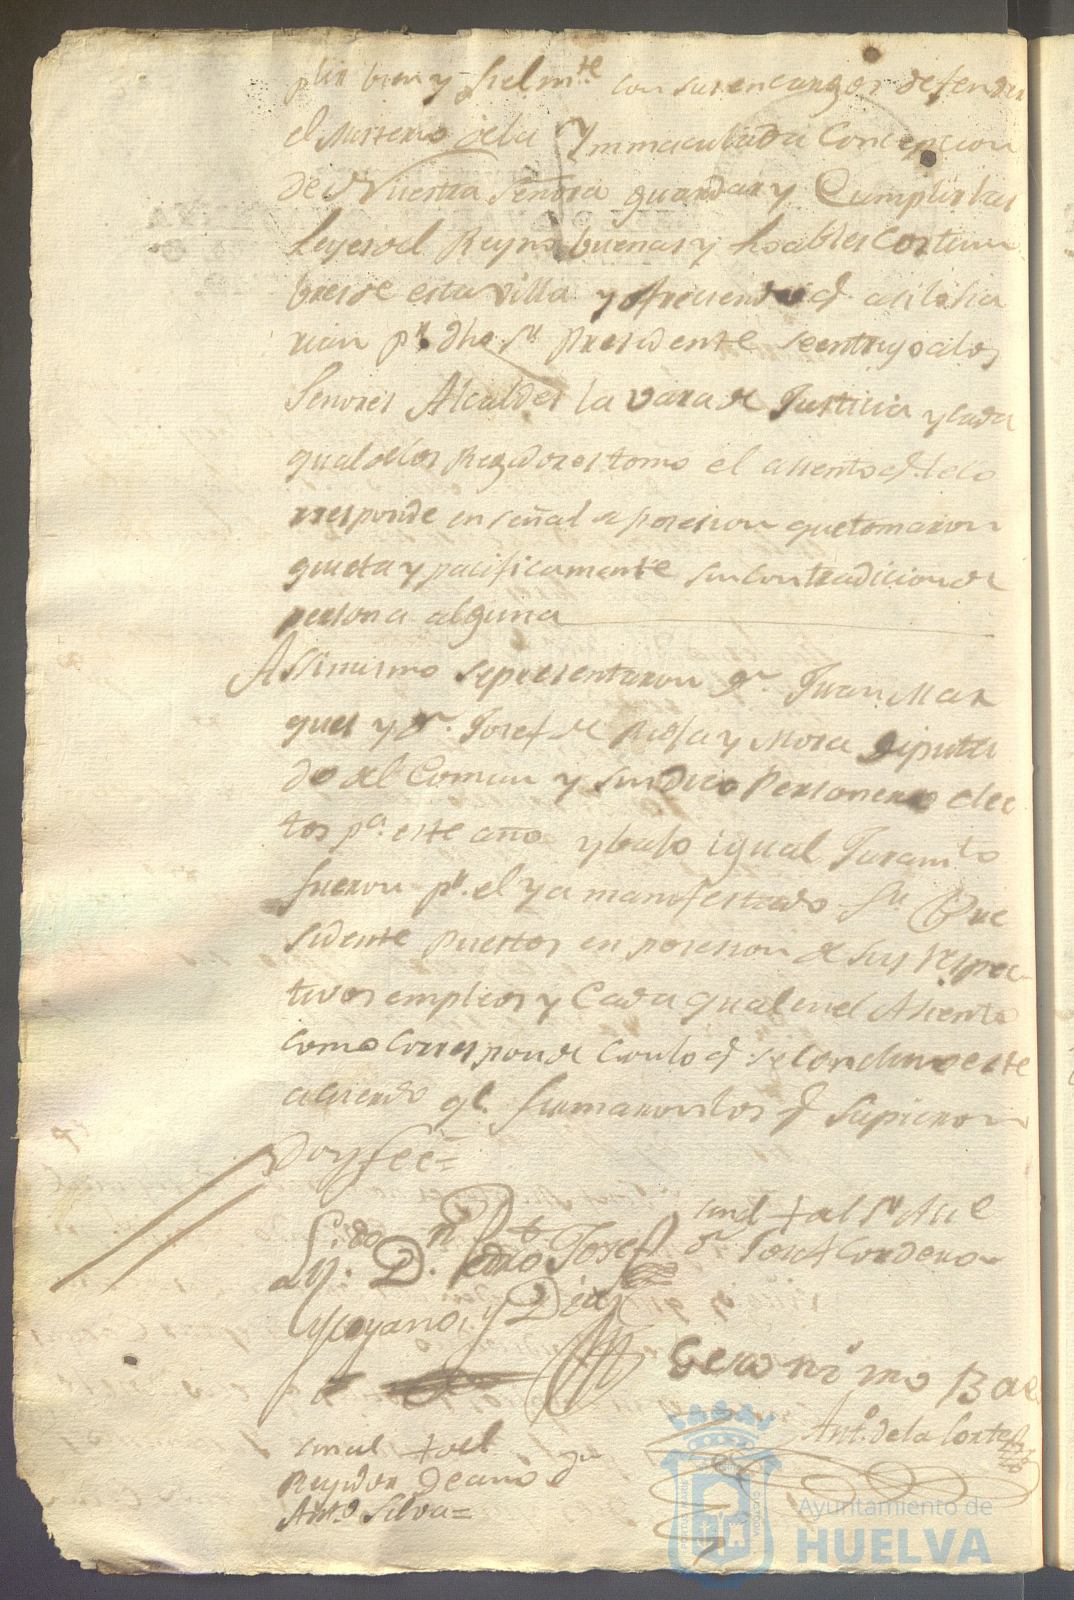 plir bien y fielmte con sus encargos defender
el Misterio dela Ymmaculada Concepcion
de Nuestra Señora guardar y Cumplir las
Leyes del Reyno buenas y Loables Costum
bres de esta villa y ofreciendo q asi lo ha
rian pr dho Sr Presidente se entrego a los
Señores Alcaldes la vara de Justicia y cada
qual de los Regidores tomo el asiento q le co
rresponde en señal de posesion que tomaron
quieta y pacificamente sin contradicion de
persona alguna
Assimismo se presentaron Dn. Juan Mar
ques y Dn. Josef de y Mora Diputa
do del Comun y Sindico Personero elec
tos pa. este año y bajo igual Juramto
fueron pr. el ya manifestado Sr Pre
sidente puestos en posesion de sus respec
tivos empleos y Cada qual en el Asiento
como corresponde con lo q se concluyo este
acuerdo qe. firmaron los q supieron
Doy fee=
Lizdo. Dn. Pedro Josef
y Diaz
señal + del Sr Alle
Dn Josef Cordero
Geronimo Bae
Anto. de la Corte
señal + del
Regidor Decano Dn
Anto Silva=
Ayuntamiento de
HUELVA